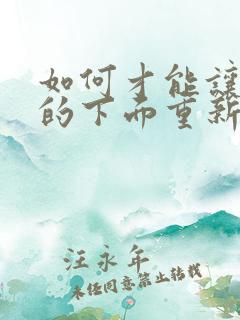 如何才能讓
的下面重新
汪永年
未经同意禁止转载